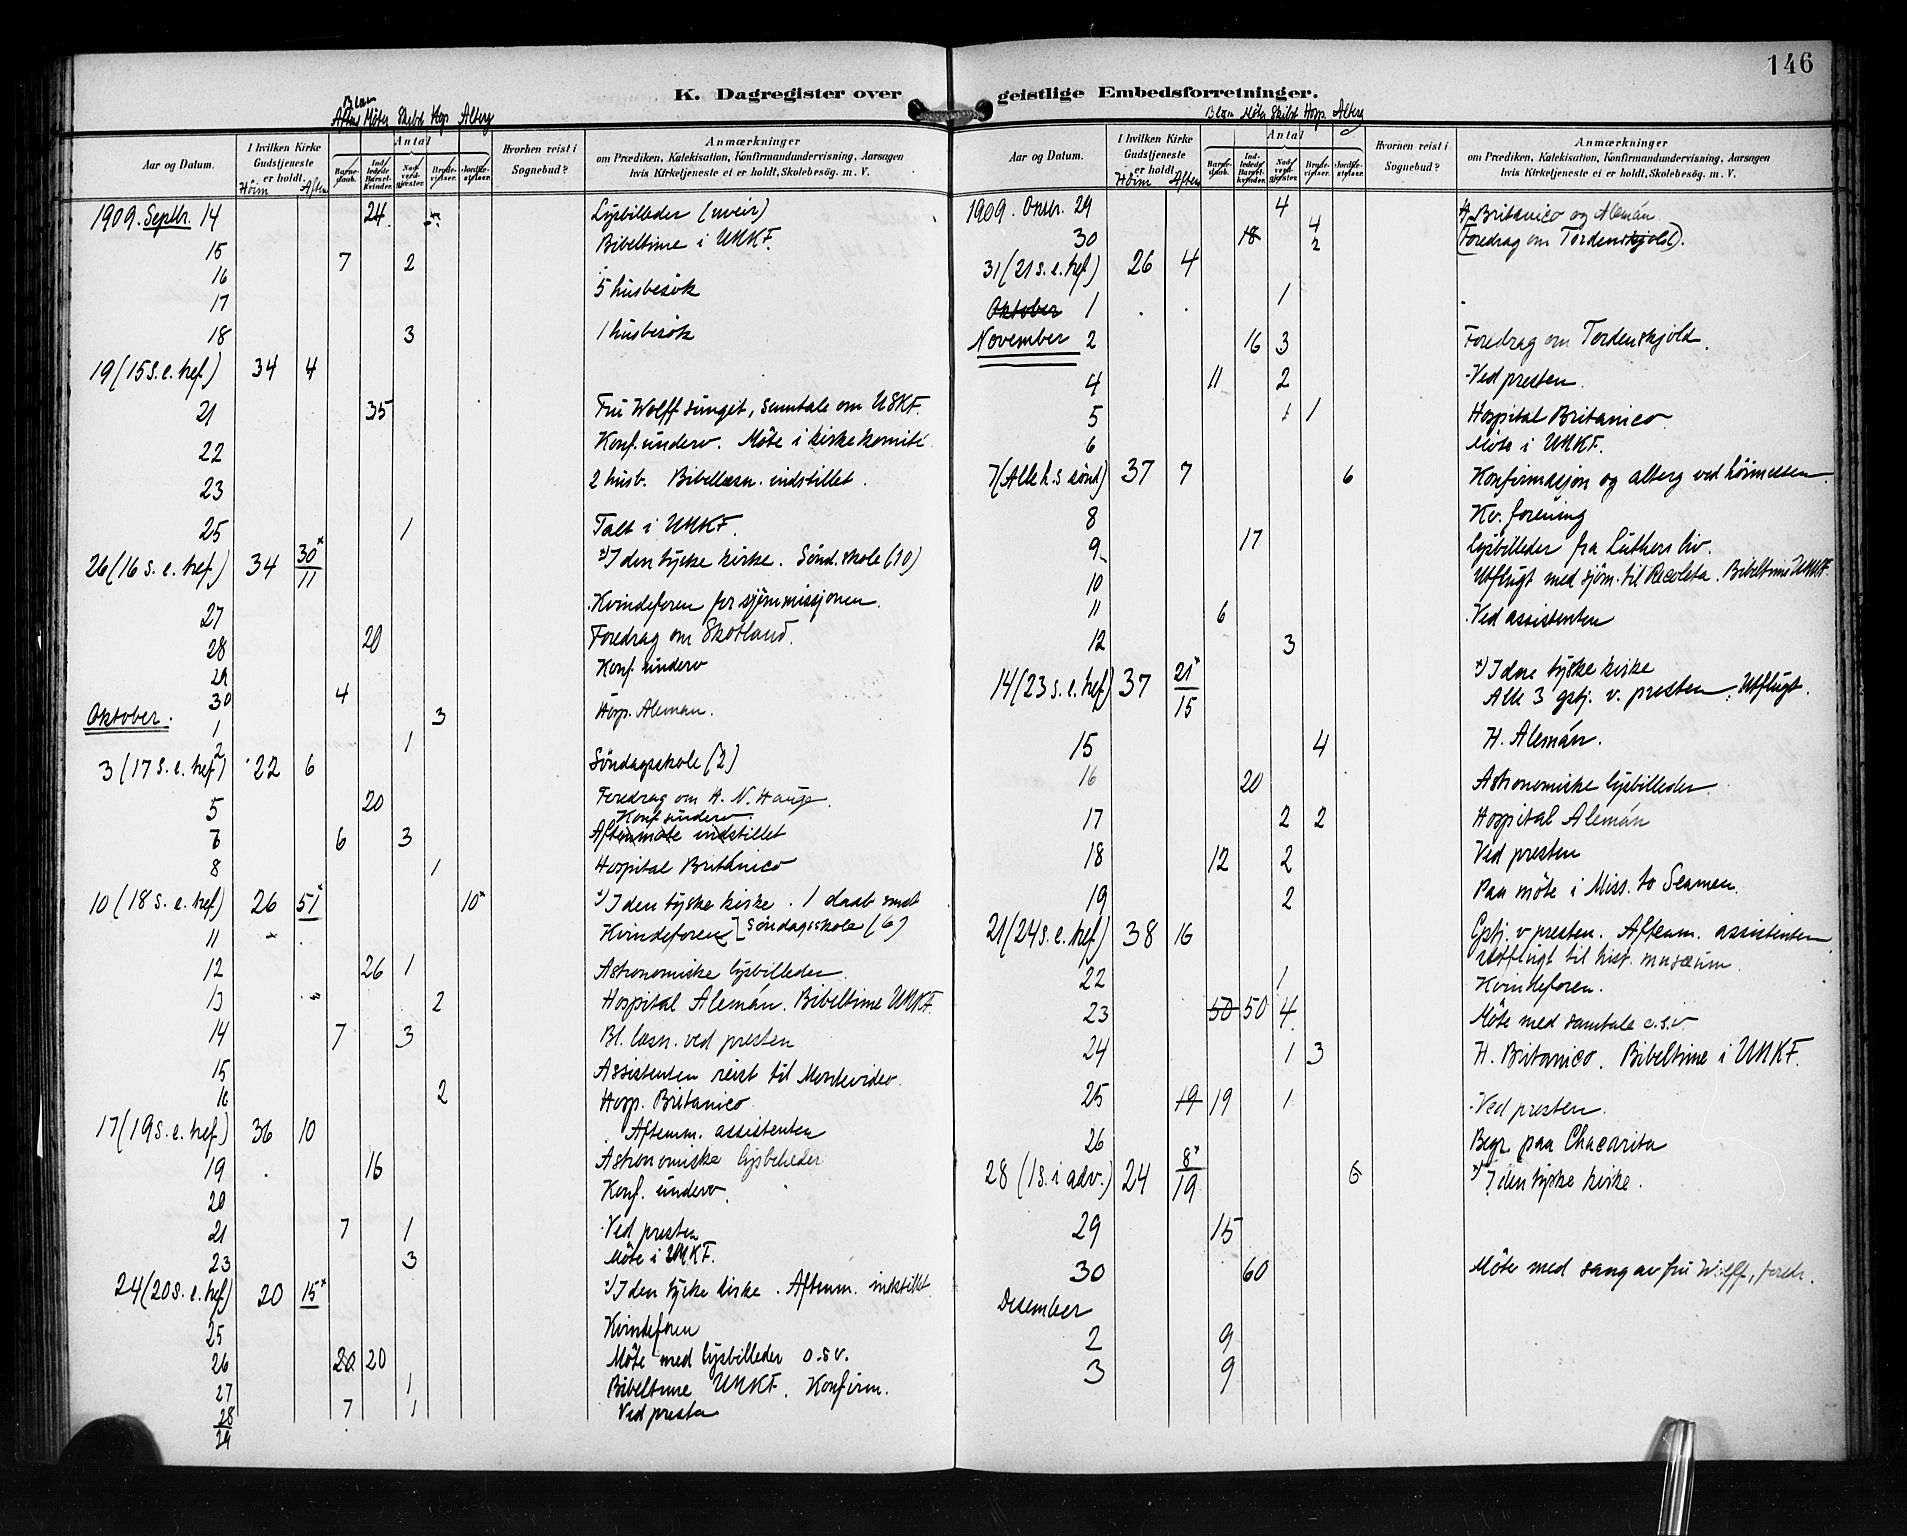 146
K. Dagregister over geistlige Embedsforretninger.
Blæsn Aften Møter Skibst Hosp Alterg
Aar og Datum. I hvilken Kirke Gudstjeneste er holdt. Antal Hvorhen reist i Sognebud? Anmærkninger om Prædiken, Katekisation, Konfirmandundervisning, Aarsagen hvis Kirketjeneste ei er holdt, Skolebesøg. m. V.
Høim Aften Barnedaab. Indledede Barselkvinder. Nadverdgjester. Brudevielser. Jordfæstelser.
1909. Septbr. 14 24 Lysbilleder (uveir)
15 Bibeltime i UNKF.
16 7 2
17 5 husbesøk
18 3 1 husbesøk
19 (15 s. e. tref.) 34 4
21 35 Fru Wolff sunget, samtale om USKF.
22 Konf. underv. Møte i kirkekomité
23 2 husb. Bibellæsn. indstillet.
25 1 Talt i UNKF.
26 (16 s. e. tref.) 34 30* 11 *) I den tyske kirke. Sønd. skole (10)
27 Kvindeforen for sjømmissjonen.
28 20 Foredrag om Skotland.
29 Konf. underv
30 4
Oktober. 1 3 Hosp. Aleman.
2 1
3 (17 s. e. tref.) 22 6 Søndagsskole (2)
5 20 Foredrag om H. N. Hauge.
Konf underv.
6 3 Aftenmøte indstillet
8 1 Hospital Británico
10 (18 s. e. tref) 26 51* 10* *) I den tyske kirke. 1 daab smst
11 Kvindeforen] [Søndagsskole (6)
12 26 1 Astronomiske lysbilleder.
13 2 Hospital Alemán. Bibeltime UNKF.
14 7 3 Bl. læsn. ved presten
15 Assistenten reist til Montevideo.
16 2 Hosp. Britanico.
17 (19 s. e. tref) 36 10 Aftenm. assistenten
19 16 Astronomiske lysbilleder
20 Konf. underv.
21 7 1 Ved presten
23 3 Møte i UNKF.
24 (20 s. e. tref) 20 15* *) I den tyske kirke. Aftenm. indstillet
25 Kvindeforen
26 20 20 Møte med lysbilleder o.s.v.
27 1 Bibeltime UNKF. Konfirm.
28 7 1 Ved presten
29
Blæsn Møter Skibst Hosp. Alterg
Aar og Datum. I hvilken Kirke Gudstjeneste er holdt. Antal Hvorhen reist i Sognebud? Anmærkninger om Prædiken, Katekisation, Konfirmandundervisning, Aarsagen hvis Kirketjeneste ei er holdt, Skolebesøg. m. V.
Høim Aften Barnedaab. Indledede Barselkvinder. Nadverdgjester. Brudevielser. Jordfæstelser.
1909. Oktbr. 29 4 4 H. Britanico og Alemán.
30 18 2 (Foredrag om Tordenskjold).
31 (21 s. e. tref) 26 4
Oktober 1 1
November 2 16 3 Foredrag om Tordenskjold.
4 11 2 Ved presten.
5 1 1 Hospital Britanico
6 Møte i UNKF.
7 (Alle h.s sønd) 37 7 6 Konfirmasjon og alterg ved høimessen
8 Kv. forening
9 17 Lysbilleder fra Luthers liv.
10 Utflugt med sjøm. til Recoleta. Bibeltime UNKF.
11 6 Ved assistenten
12 3
14 (23 s. e. tref) 37 21* 15 *) I den tyske kirke
Alle 3 gstj. v. presten. Utflugt.
15 4 H. Alemán.
16 20 Astronomiske lysbilleder.
17 2 2 Hospital Alemán
18 12 2 Ved presten
19 2 Paa møte i Miss. to Seamen.
21 (24 s. e. tref) 38 16 Gstj. v presten. Aftenm. assistenten
Utflugt til hist. musæum.
22 1 Kvindeforen.
23 50 50 4 Møte med samtale o.s.v.
24 1 3 H. Britanico. Bibeltime i UNKF.
25 19 19 1 Ved presten.
26 Begr. paa Chacarita
28 (1 s. i adv.) 24 8* 19 6 *) I den tyske kirke.
29 15
30 60 Møte med sang av fru Wolff, foredr.
Desember
2 9
3 9